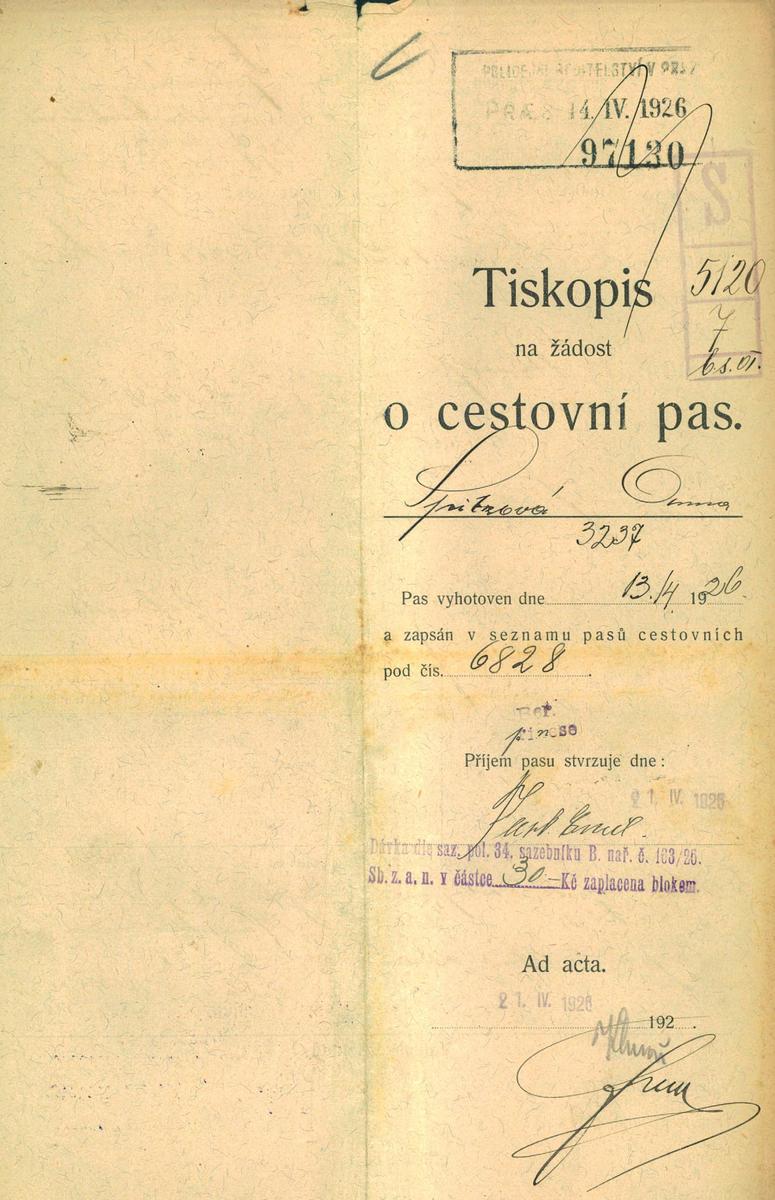 POLICEJNÍ ŘEDITELSTVÍ V PRAZE
PRAES 14. IV. 1926
97130
S
Tiskopis
5120
7
na žádost
o cestovní pas.
Spitzová Anna
3237
Pas vyhotoven dne 13./4. 1926.
a zapsán v seznamu pasů cestovních
pod čís. 6828.
Příjem pasu stvrzuje dne:
21. IV. 1926
Dávka dle saz. pol. 34. sazebníku B. nař. č. 163/26.
Sb. z. a. n. v částce 30 — Kč zaplacena blokem.
Ad acta.
21. IV. 1926
192